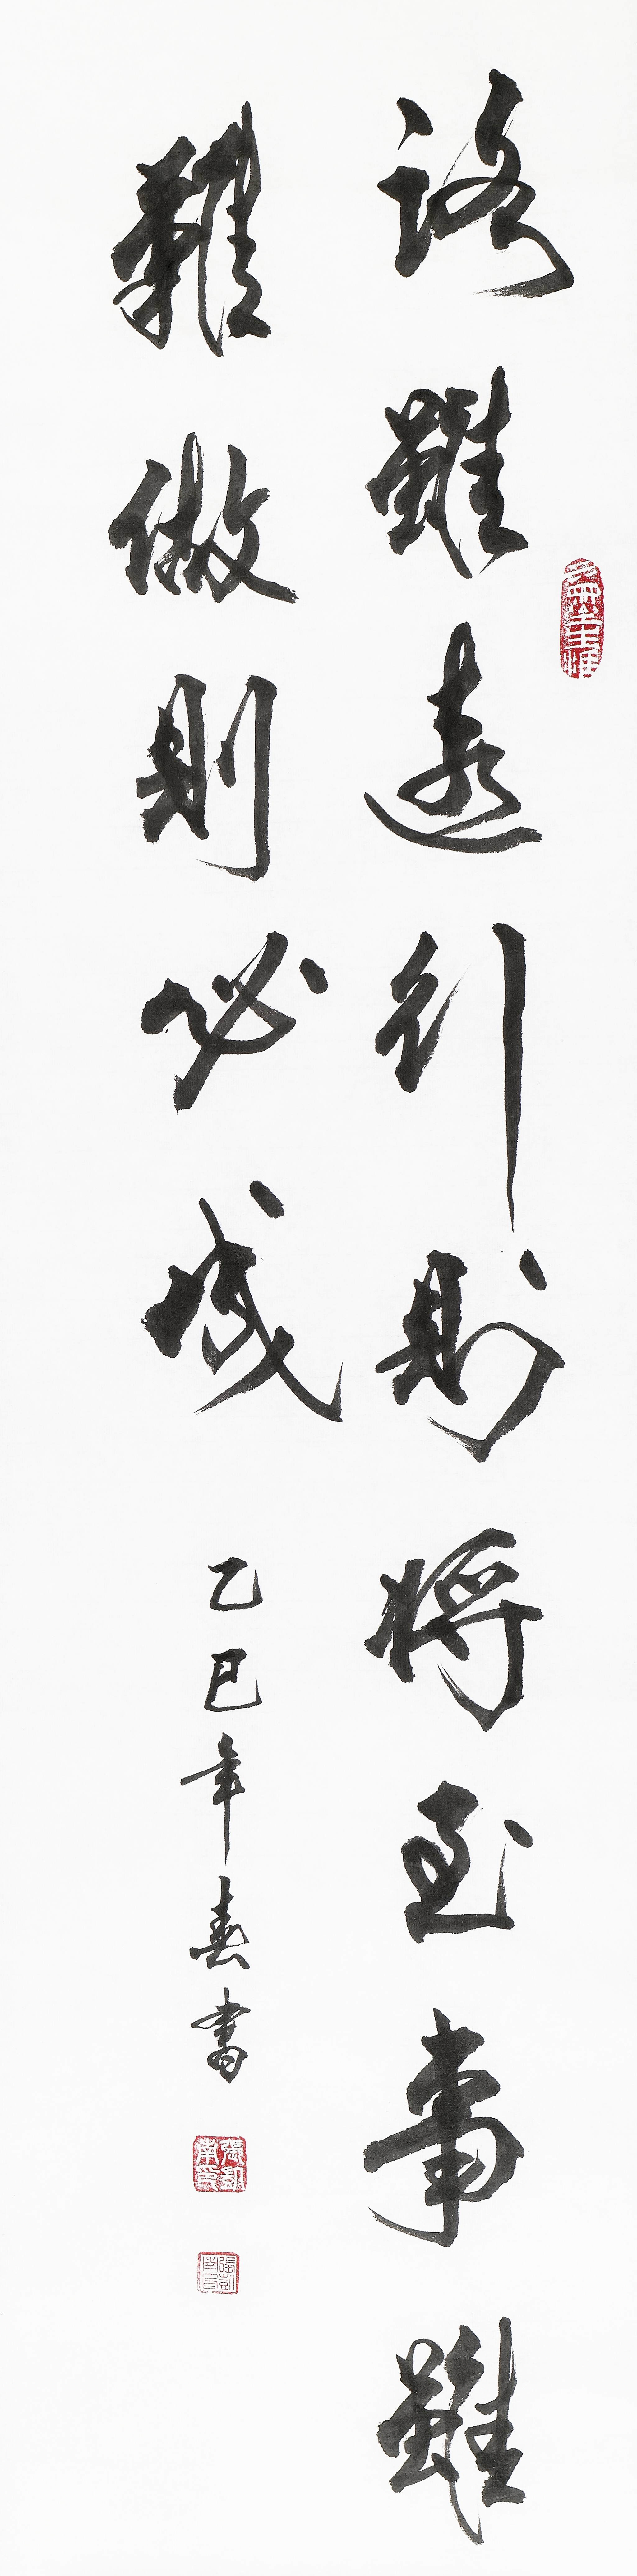 路雖遠行則將至事雖
難做則必成
乙巳年春書